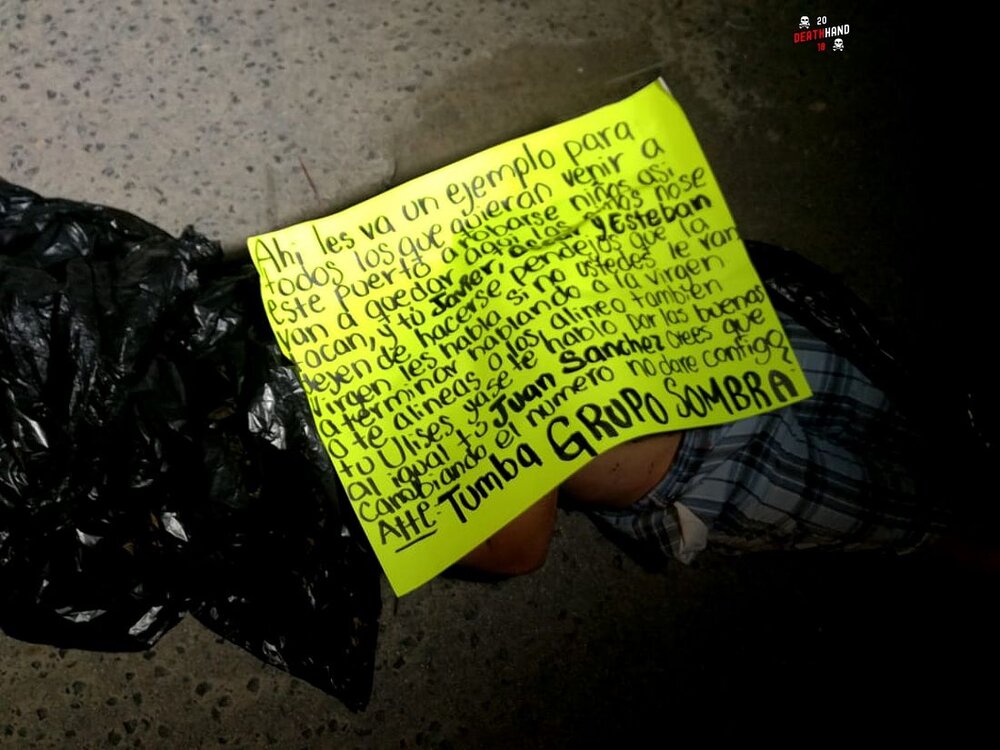 20
DEATHHAND
18
Ahi les va un ejemplo para
todos los que quieran venir a
este puerto a robarse niños asi
van a quedar aqui los niños no se
tocan, y tú Javier, y Esteban
dejen de hacerse pendejos que la
virgen les habla si no ustedes le van
a terminar hablando a la virgen
o te alineas o los alineo también
tu Ulises ya se te hablo por las buenas
al igual tu Juan Sanchez crees que
cambiando el numero no dare contigo?
Atte: Tumba GRUPO SOMBRA